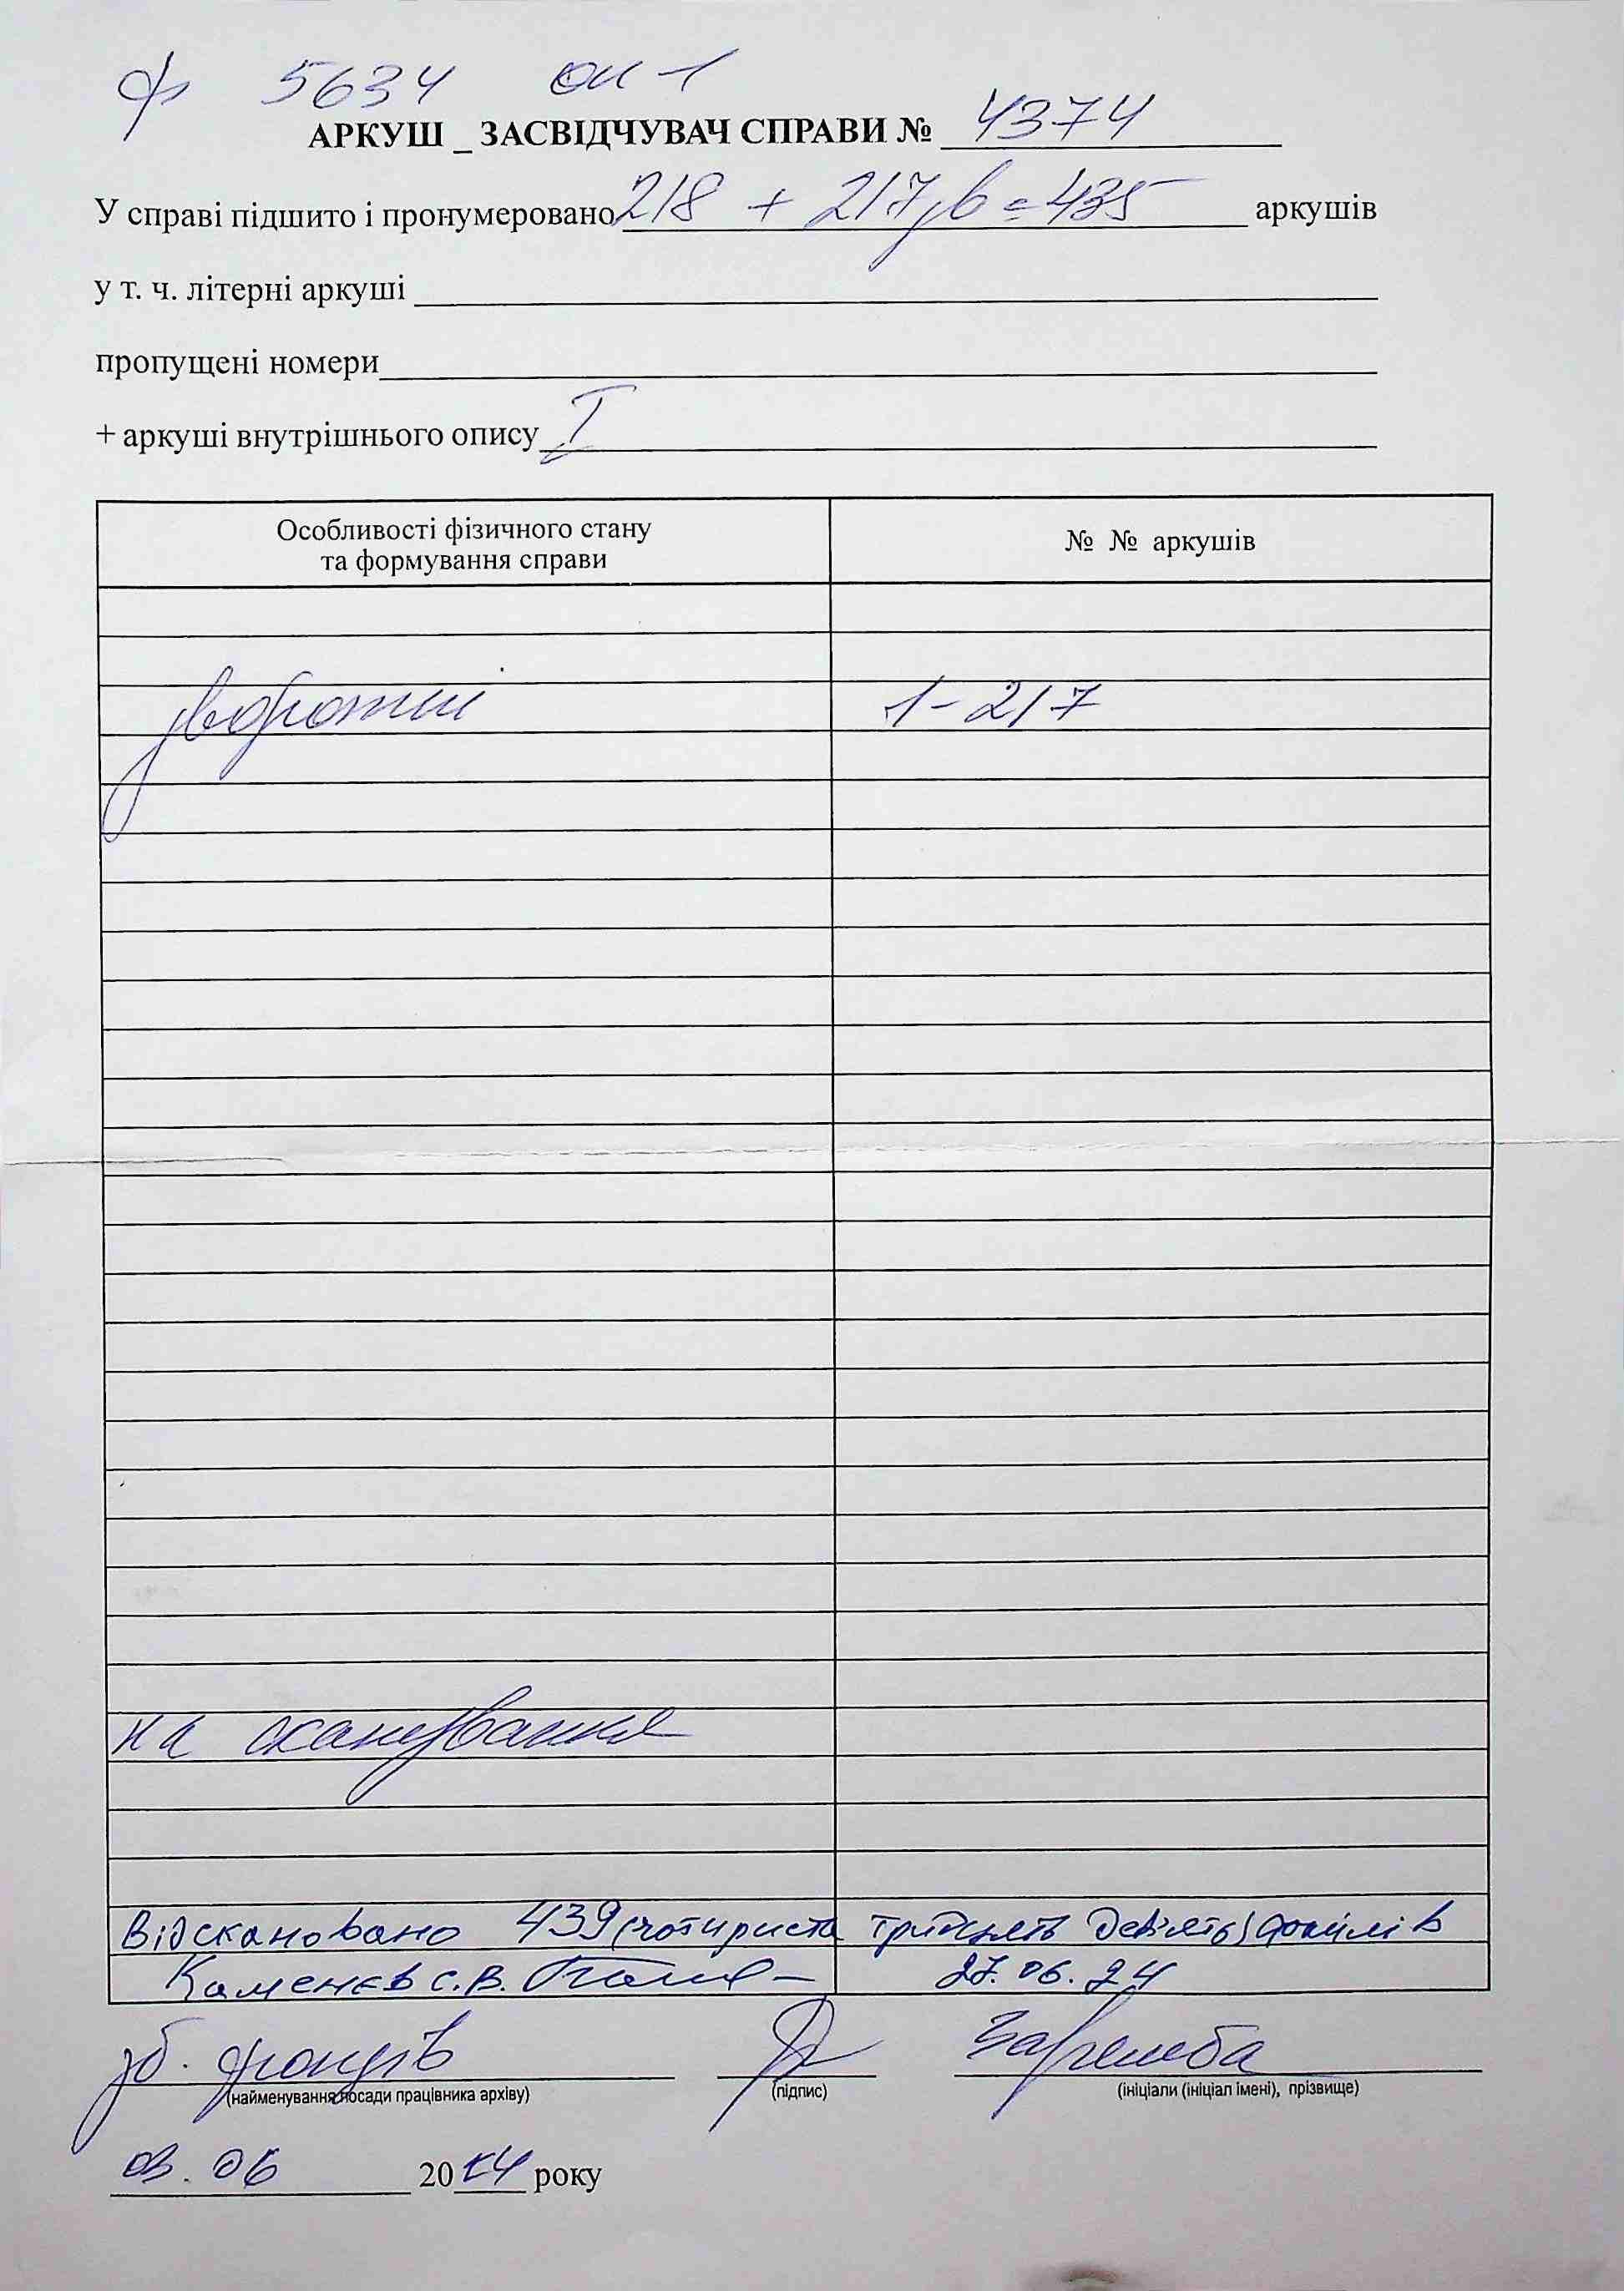 ф 5634 оп 1
АРКУШ _ ЗАСВІДЧУВАЧ СПРАВИ № 4374
У справі підшито і пронумеровано 218 + 217зв = 435 аркушів
у т. ч. літерні аркуші
пропущені номери
+ аркуші внутрішнього опису I
Особливості фізичного стану
та формування справи
№ № аркушів
зворотні 1-217
на сканування
Відскановано 439 (чотириста тридцять девять) файлів
Каменєв С.В. 27.06.24
зб. фондів Заремба
(найменування посади працівника архіву) (підпис) (ініціали (ініціал імені), прізвище)
03.06 2024 року